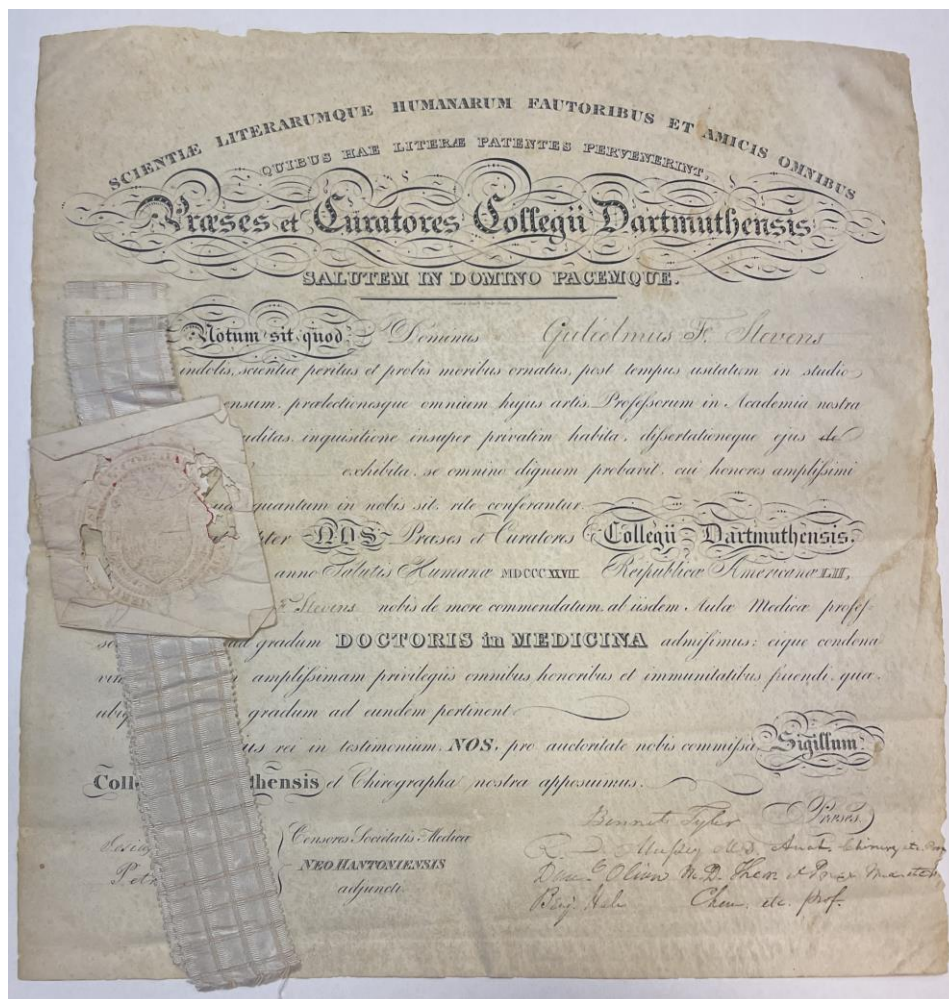 SCIENTIÆ LITERARUMQUE HUMANARUM FAUTORIBUS ET AMICIS OMNIBUS
QUIBUS HAE LITERÆ PATENTES PERVENERINT,
Præses et Curatores Collegii Dartmuthensis
SALUTEM IN DOMINO PACEMQUE.
Notum sit quod Dominus Gulielmus F. Stevens
indolis, scientiæ peritus et probis moribus ornatus, post tempus usitatum in studio
ensum, prælectionesque omnium hujus artis Professorum in Academia nostra
uditas, inquisitione insuper privatim habita, dissertationeque ejus de
exhibita, se omnino dignum probavit, cui honores amplissimi
quantum in nobis sit, rite conferantur.
pter NOS Præses et Curatores Collegii Dartmuthensis.
anno Salutis Humanæ MDCCCXXVII Reipublicæ Americanæ LII,
F. Stevens nobis de more commendatum ab iisdem Aulæ Medicæ profes-
ad gradum DOCTORIS in MEDICINA admisimus: eique condona
amplissimam privilegiis omnibus, honoribus et immunitatibus fruendi, quæ
ubi gradum ad eundem pertinent
us rei in testimonium, NOS, pro auctoritate nobis commissa Sigillum
Coll hensis et Chirographa nostra apposuimus.
Bennet Tyler Præses
R. D. Mussey M.D. Anat. Chirurg. etc. Prof
Dan Oliver M.D. Theor et Prax. Mat
Benj Hale Chem. etc. prof.
Censores Societatis Medicæ
NEO HANTONIENSIS
adjuncti.